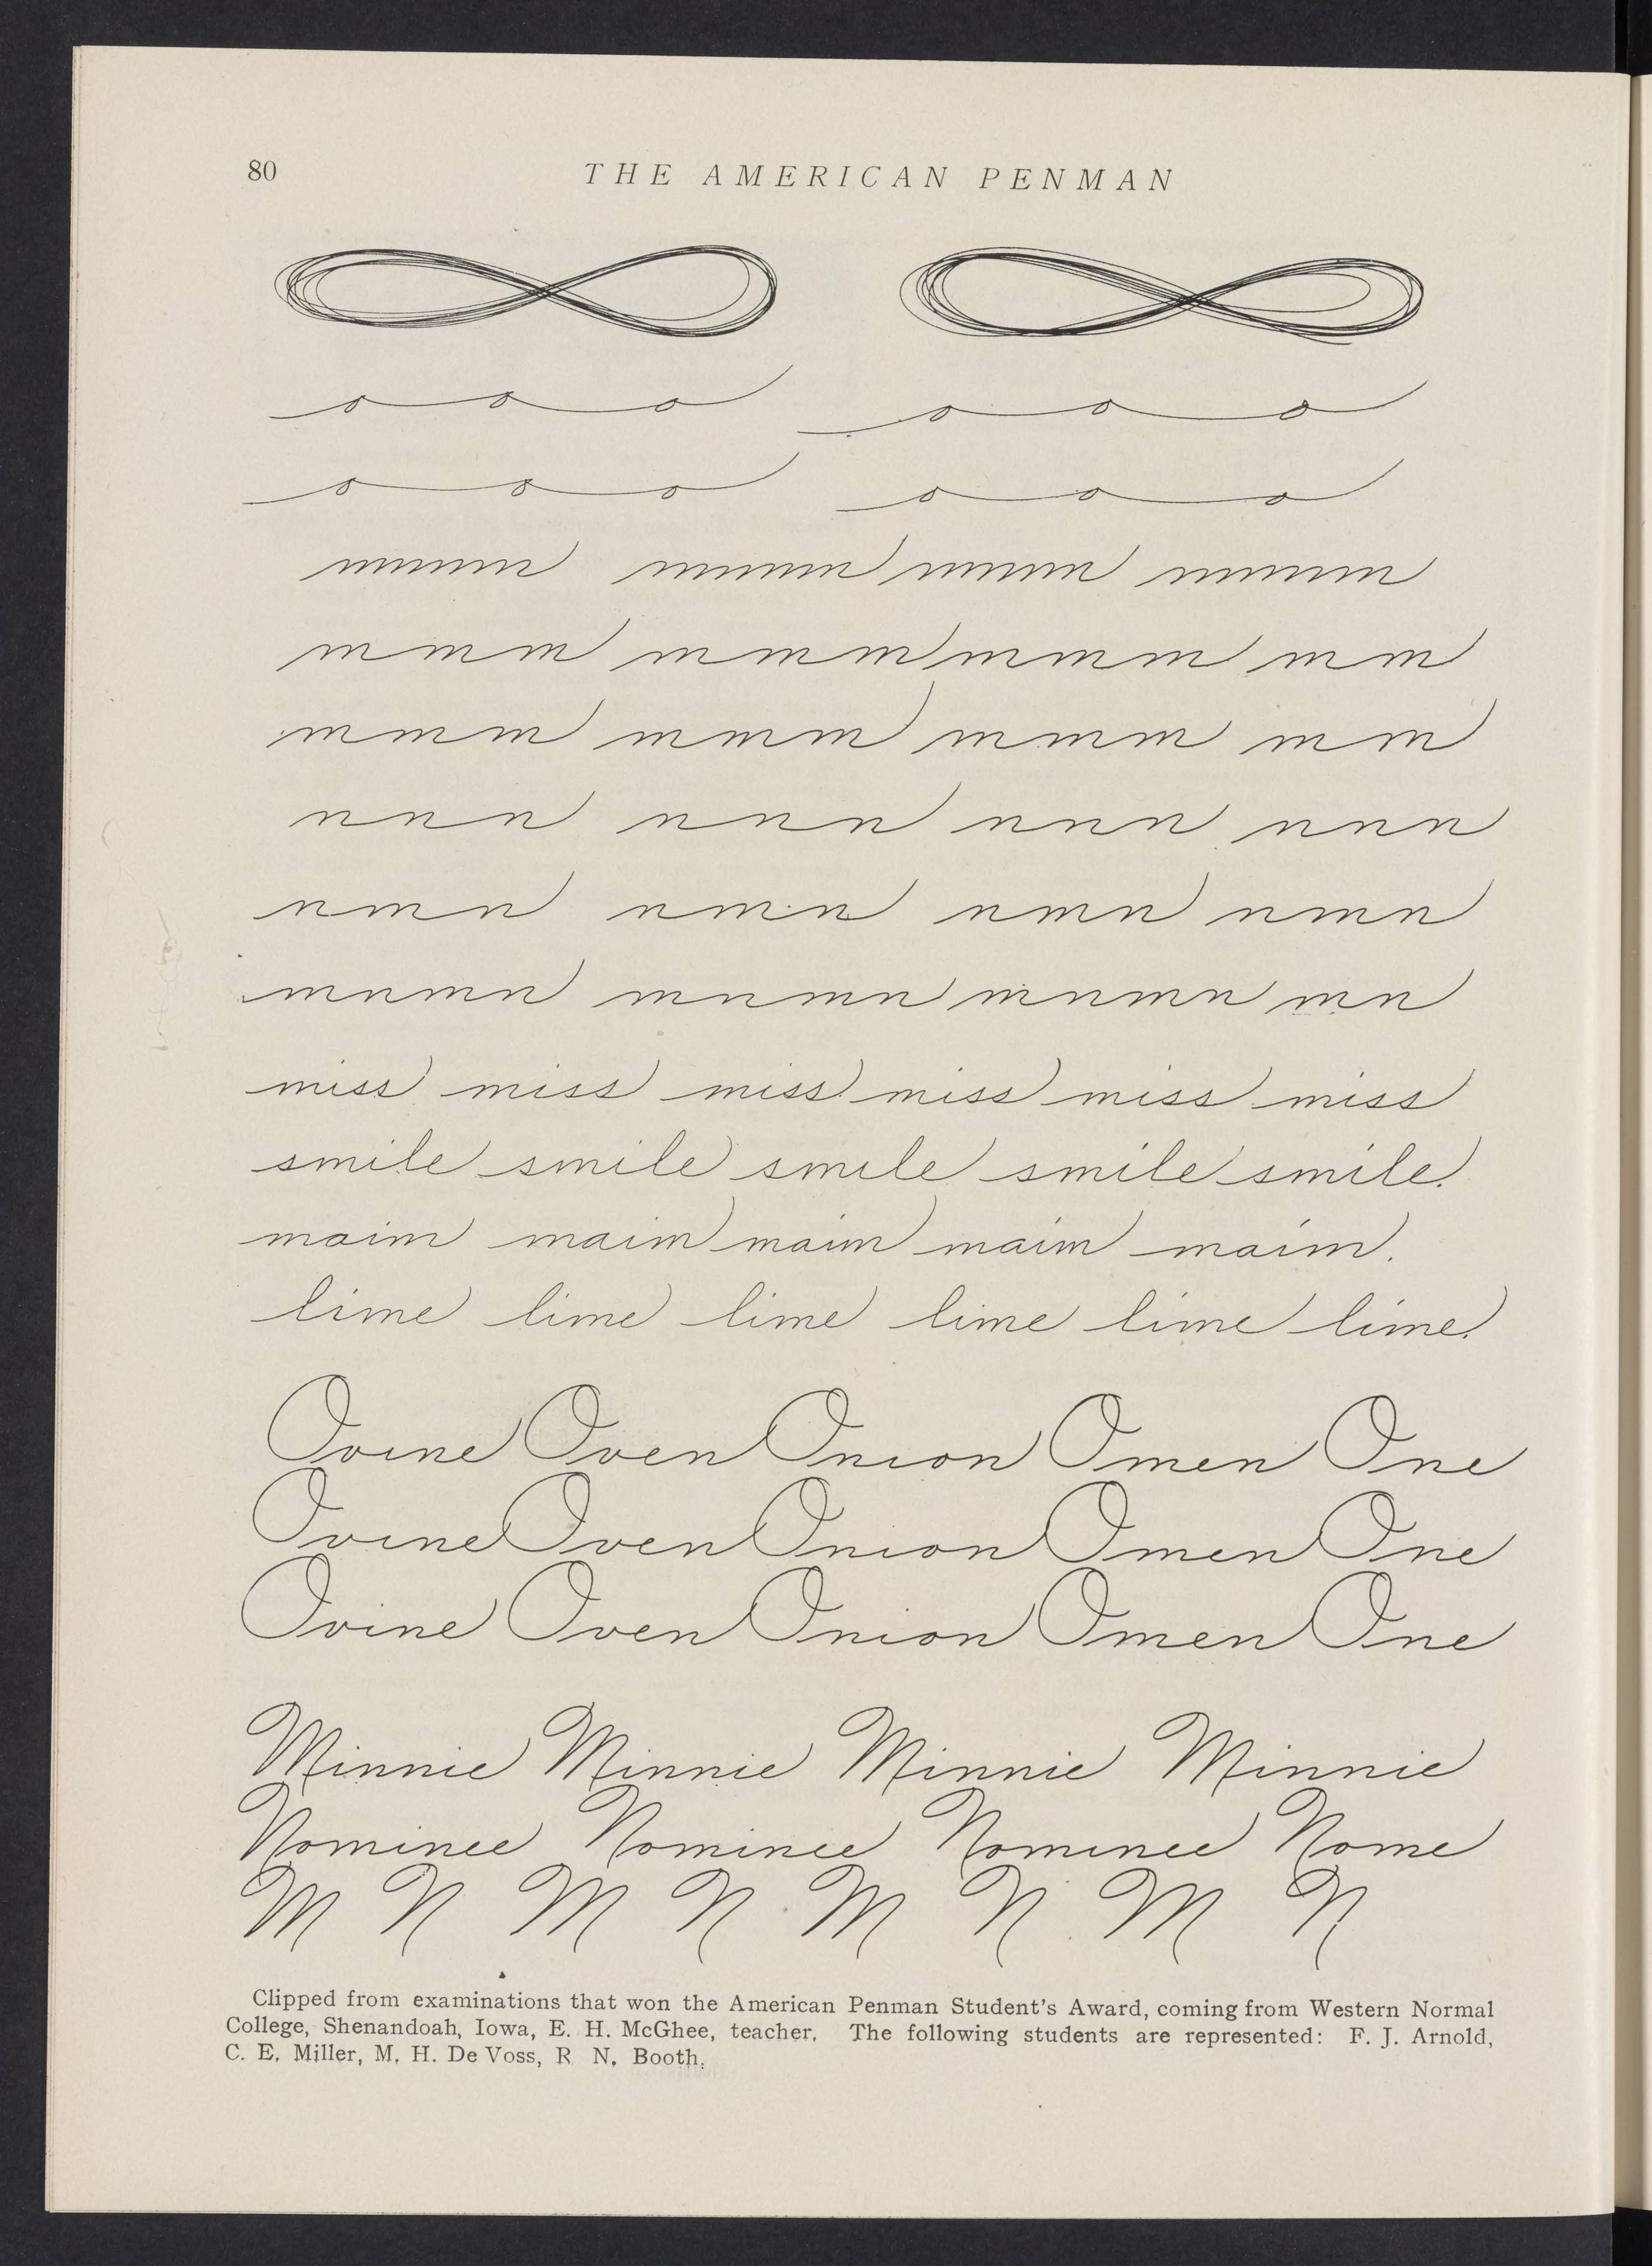 80 THE AMERICAN PENMAN
o o o o o o
o o o o o o
m m m m m m m m m m m
m m m m m m m m m m m
n n n n n n n n n n n n
n m n n m n n m n n m n
mnmn mnmn mnmn mn
miss miss miss miss miss miss
smile smile smile smile smile.
maim maim maim maim maim.
lime lime lime lime lime lime.
Ovine Oven Onion Omen One
Ovine Oven Onion Omen One
Ovine Oven Onion Omen One
Minnie Minnie Minnie Minnie
Nominee Nominee Nominee Nome
M N M N M N M N
Clipped from examinations that won the American Penman Student's Award, coming from Western Normal
College, Shenandoah, Iowa, E. H. McGhee, teacher. The following students are represented: F. J. Arnold,
C. E. Miller, M. H. De Voss, R N. Booth.